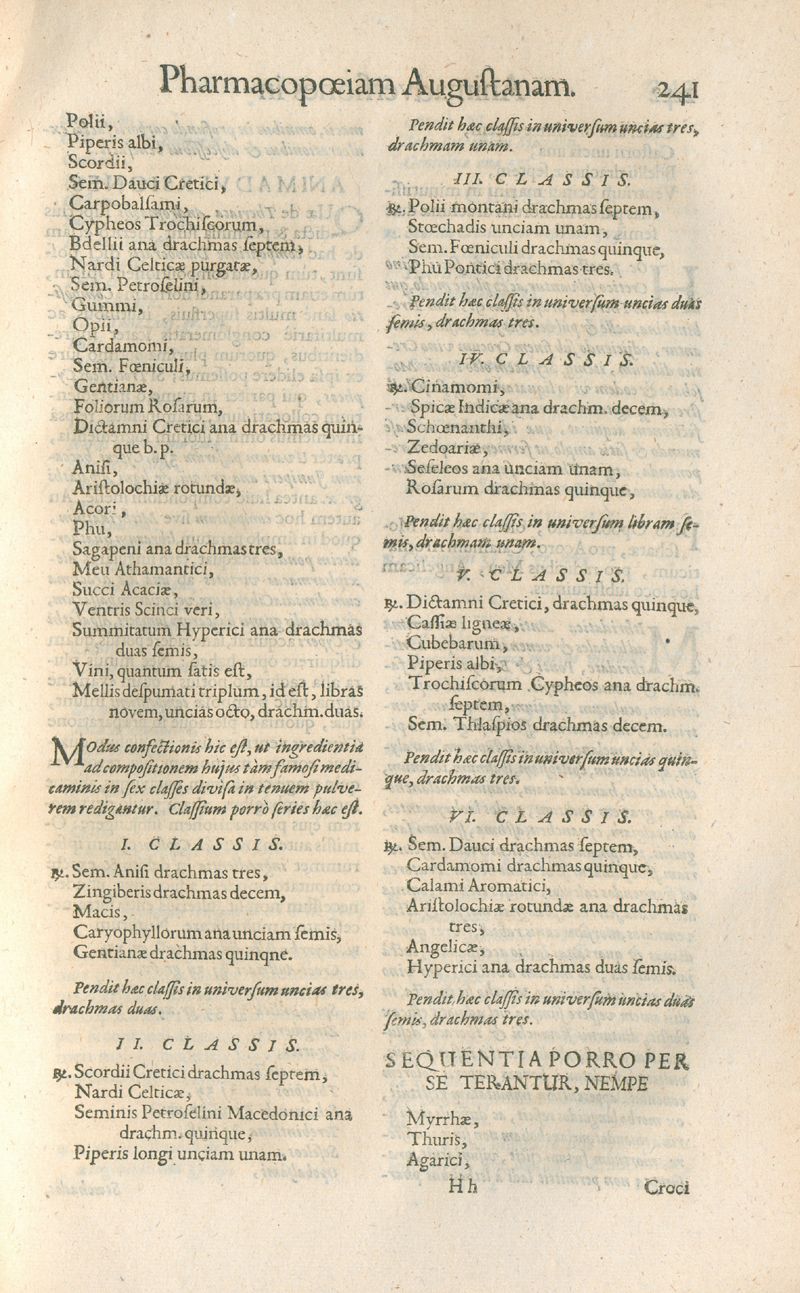 Pharmacopœiam Auguſtanam. 241
Polii,
Piperis albi,
Scordii,
Sem. Dauci Cretici,
Carpobalſami,
Cypheos Trochiſcorum,
Bdellii ana drachmas ſeptem,
Nardi Celticæ purgatæ,
Sem. Petroſelini,
Gummi,
Opii,
Cardamomi,
Sem. Fœniculi,
Gentianæ,
Foliorum Roſarum,
Dictamni Cretici ana drachmas quin-
que b. p.
Aniſi,
Ariſtolochiæ rotundæ,
Acori,
Phu,
Sagapeni ana drachmas tres,
Meu Athamantici,
Succi Acaciæ,
Ventris Scinci veri,
Summitatum Hyperici ana drachmas
duas ſemis,
Vini, quantum ſatis eſt,
Mellis deſpumati triplum, id eſt, libras
novem, uncias octo, drachm. duas.
MOdus confectionis hic eſt, ut ingredientia
ad compoſitionem hujus tàm famoſi medi-
caminis in ſex claſſes diviſa in tenuem pulve-
rem redigantur. Claſſium porrò ſeries hæc eſt.
I. CLASSIS.
℞. Sem. Aniſi drachmas tres,
Zingiberis drachmas decem,
Macis,
Caryophyllorum ana unciam ſemis,
Gentianæ drachmas quinqne.
Pendit hæc claſſis in univerſum uncias tres,
drachmas duas.
II. CLASSIS.
℞. Scordii Cretici drachmas ſeptem,
Nardi Celticæ,
Seminis Petroſelini Macedonici ana
drachm. quinque,
Piperis longi unciam unam.
Pendit hæc claſſis in univerſum uncias tres,
drachmam unam.
III. CLASSIS.
℞. Polii montani drachmas ſeptem,
Stœchadis unciam unam,
Sem. Fœniculi drachmas quinque,
Phu Pontici drachmas tres.
Pendit hæc claſſis in univerſum uncias duas
ſemis, drachmas tres.
IV. CLASSIS.
℞. Cinamomi,
Spicæ Indicæ ana drachm. decem,
Schœnanthi,
Zedoariæ,
Seſeleos ana unciam unam,
Roſarum drachmas quinque,
Pendit hæc claſſis in univerſum libram ſe-
mis, drachmam unam.
V. CLASSIS.
℞. Dictamni Cretici, drachmas quinque,
Caſſiæ ligneæ,
Cubebarum,
Piperis albi,
Trochiſcorum Cypheos ana drachm.
ſeptem,
Sem. Thlaſpios drachmas decem.
Pendit hæc claſſis in univerſum uncias quin-
que, drachmas tres.
VI. CLASSIS.
℞. Sem. Dauci drachmas ſeptem,
Cardamomi drachmas quinque,
Calami Aromatici,
Ariſtolochiæ rotundæ ana drachmas
tres,
Angelicæ,
Hyperici ana drachmas duas ſemis.
Pendit hæc claſſis in univerſum uncias duas
ſemis, drachmas tres.
SEQUENTIA PORRO PER
SE TERANTUR, NEMPE
Myrrhæ,
Thuris,
Agarici,
H h Croci